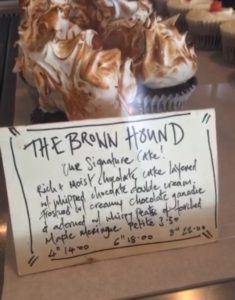 THE BROWN HOUND
Our Signature Cake!
Rich & Moist chocolate cake layered
w/ whipped chocolate double cream.
Frosted w/ creamy chocolate ganache
& adorned w/ whispy peaks of torched
Maple Meringue Petite 3.50
4" 14.00 6" 18.00 8" 28.00